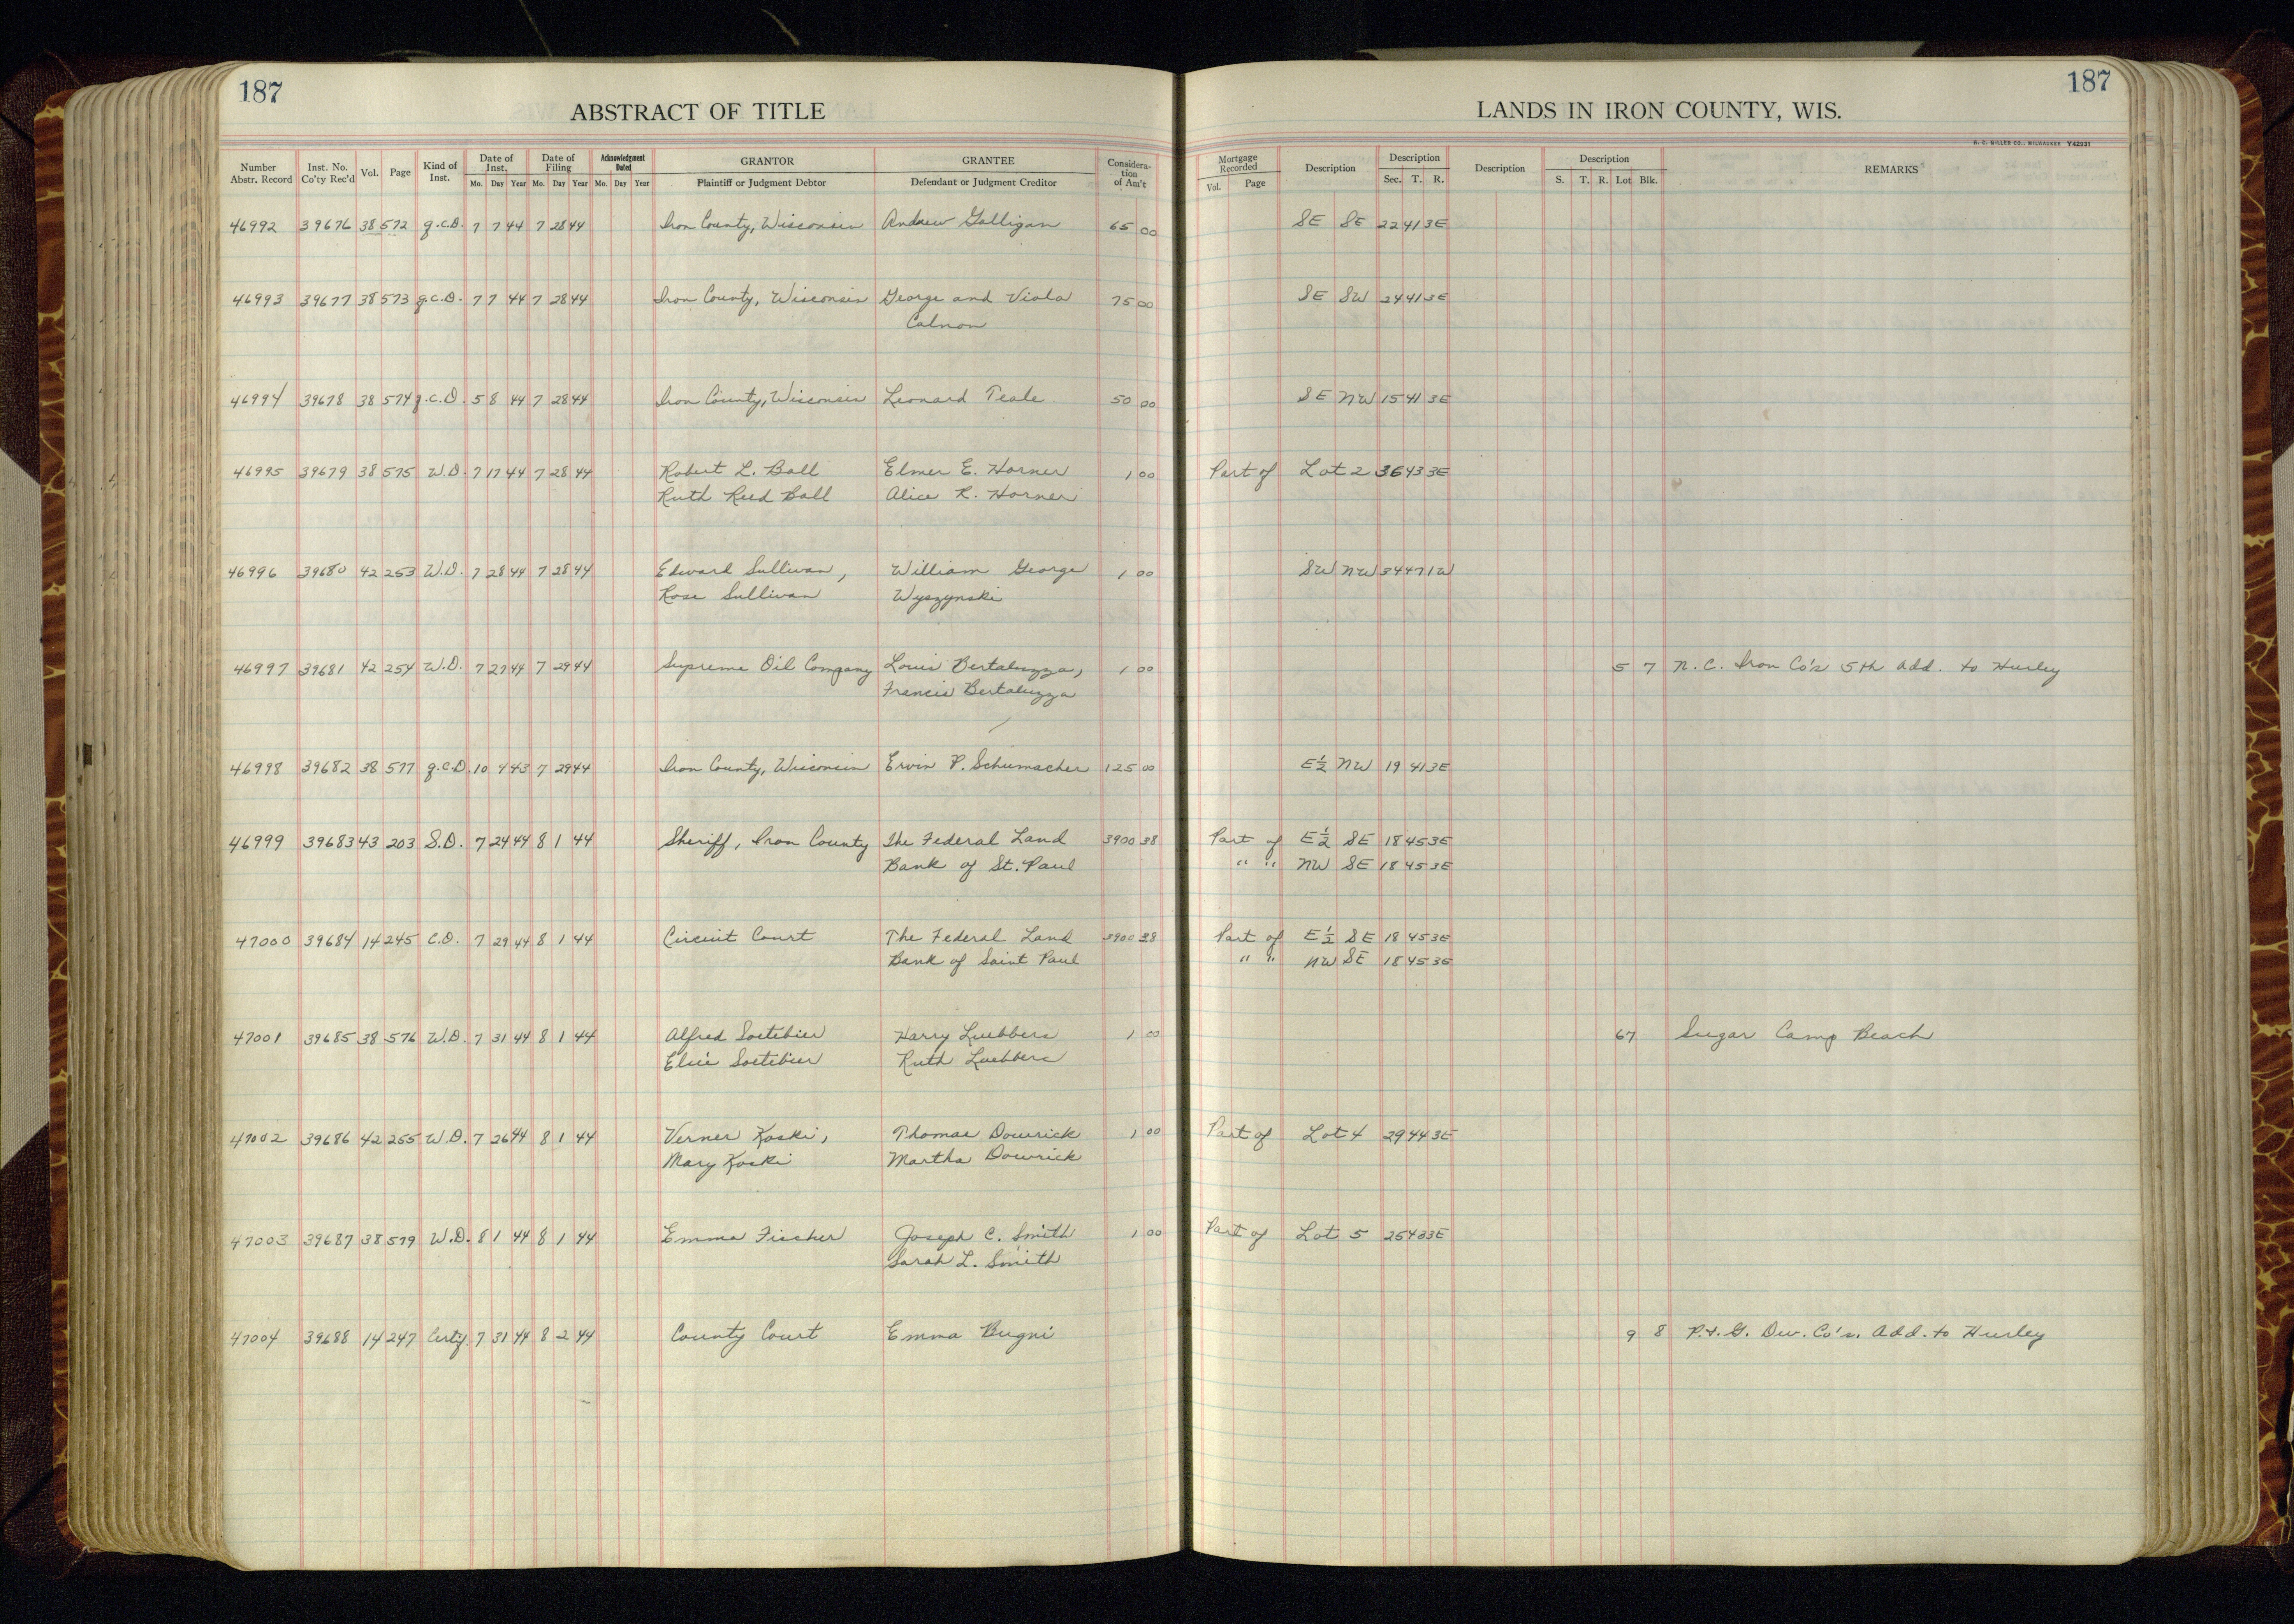 187
ABSTRACT OF TITLE
Number Abstr. Record Inst. No. Co'ty Rec'd Vol. Page Kind of Inst. Date of Inst. Mo. Day Year Date of Filing Mo. Day Year Acknowledgment Dated Mo. Day Year GRANTOR Plaintiff or Judgment Debtor GRANTEE Defendant or Judgment Creditor Considera-tion of Am't
46992 39676 38 572 q.c.D. 7 7 44 7 28 44 Iron County, Wisconsin Andrew Galligan 65 00
46993 39677 38 573 q.c.D. 7 7 44 7 28 44 Iron County, Wisconsin George and Viola 75 00
Calnon
46994 39678 38 574 q.c.D. 5 8 44 7 28 44 Iron County, Wisconsin Leonard Teale 50 00
46995 39679 38 575 W.D. 7 17 44 7 28 44 Robert L. Ball Elmer E. Horner 1 00
Ruth Reed Ball Alice R. Horner
46996 39680 42 253 W.D. 7 28 44 7 28 44 Edward Sullivan, William George 1 00
Rose Sullivan Wyszynski
46997 39681 42 254 W.D. 7 27 44 7 29 44 Supreme Oil Company Louis Bertaluzza, 1 00
Francis Bertaluzza
46998 39682 38 577 q.c.D. 10 4 43 7 29 44 Iron County, Wisconsin Ervin P. Schumacher 125 00
46999 39683 43 203 S.D. 7 24 44 8 1 44 Sheriff, Iron County The Federal Land 3900 38
Bank of St. Paul
47000 39684 14 245 C.D. 7 29 44 8 1 44 Circuit Court The Federal Land 3900 38
Bank of Saint Paul
47001 39685 38 576 W.D. 7 31 44 8 1 44 Alfred Soetebier Harry Luebbers 1 00
Elsie Soetebier Ruth Luebbers
47002 39686 42 255 W.D. 7 26 44 8 1 44 Verner Koski, Thomas Dowrick 1 00
Mary Koski Martha Dowrick
47003 39687 38 579 W.D. 8 1 44 8 1 44 Emma Fischer Joseph C. Smith 1 00
Sarah L. Smith
47004 39688 14 247 Certif. 7 31 44 8 2 44 County Court Emma Bugni
187
LANDS IN IRON COUNTY, WIS.
H. C. MILLER CO., MILWAUKEE Y42931
Mortgage Recorded Vol. Page Description Description Sec. T. R. Description Description S. T. R. Lot Blk. REMARKS
SE SE 22 41 3E
SE SW 24 41 3E
SE NW 15 41 3E
Part of Lot 2 36 43 3E
SW NW 34 47 1W
5 7 N. C. Iron Co's 5th Add. to Hurley
E½ NW 19 41 3E
Part of E½ SE 18 45 3E
" " NW SE 18 45 3E
Part of E½ SE 18 45 3E
" " NW SE 18 45 3E
67 Sugar Camp Beach
Part of Lot 4 29 44 3E
Part of Lot 5 25 43 3E
9 8 P. & G. Dev. Co's. Add. to Hurley